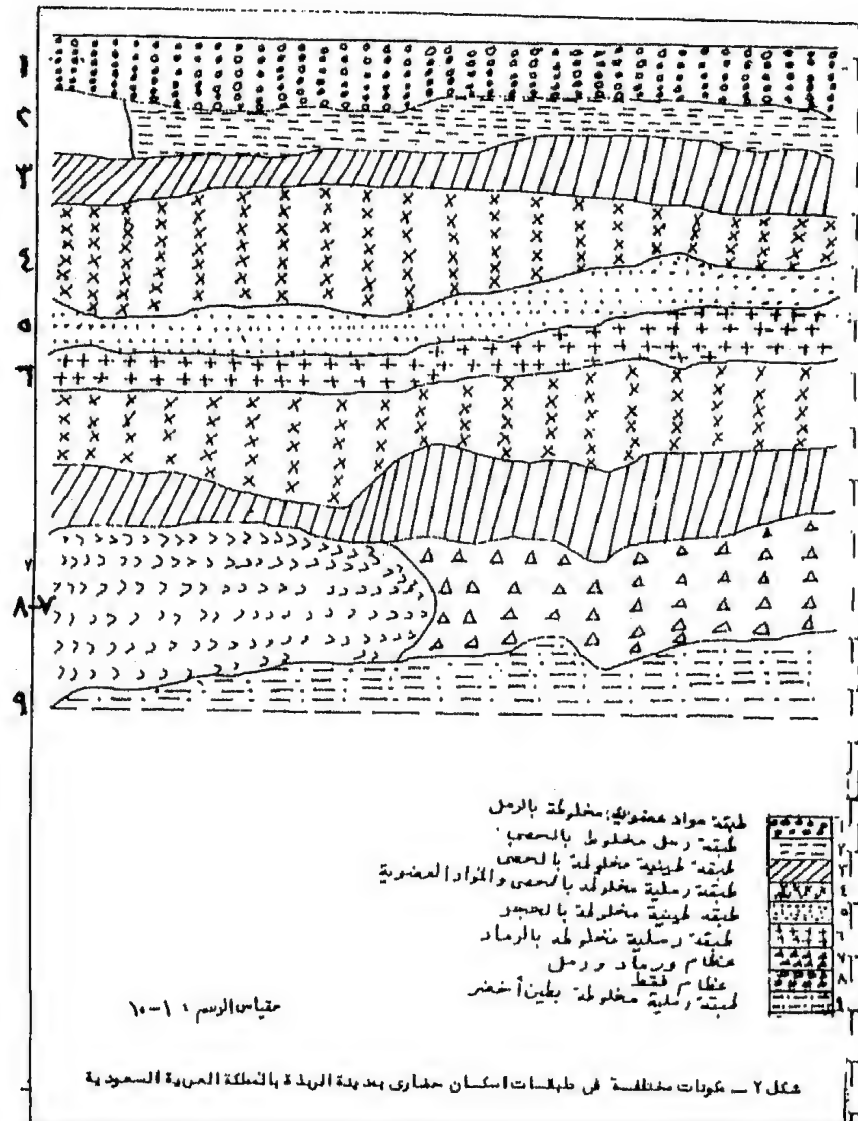 ١
٢
٣
٤
٥
٦
٧
٨
٩
طبقة مواد عضوية مخلوطة بالرمل
١
طبقة رمل مخلوط بالحصى
٢
طبقة طينية مخلوطة بالحصى
٣
طبقة رملية مخلوطة بالحصى والمواد العضوية
٤
طبقة طينية مخلوطة بالحجر
٥
طبقة رملية مخلوطة بالرماد
٦
عظام ورماد ورمل
٧
عظام فقط
٨
طبقة رملية مخلوطة بطين أخضر
٩
مقياس الرسم : ١-١٠
شكل ٢ — مكونات مختلفة في طبقات اسكان حضارى بمدينة الربذة بالمملكة العربية السعودية